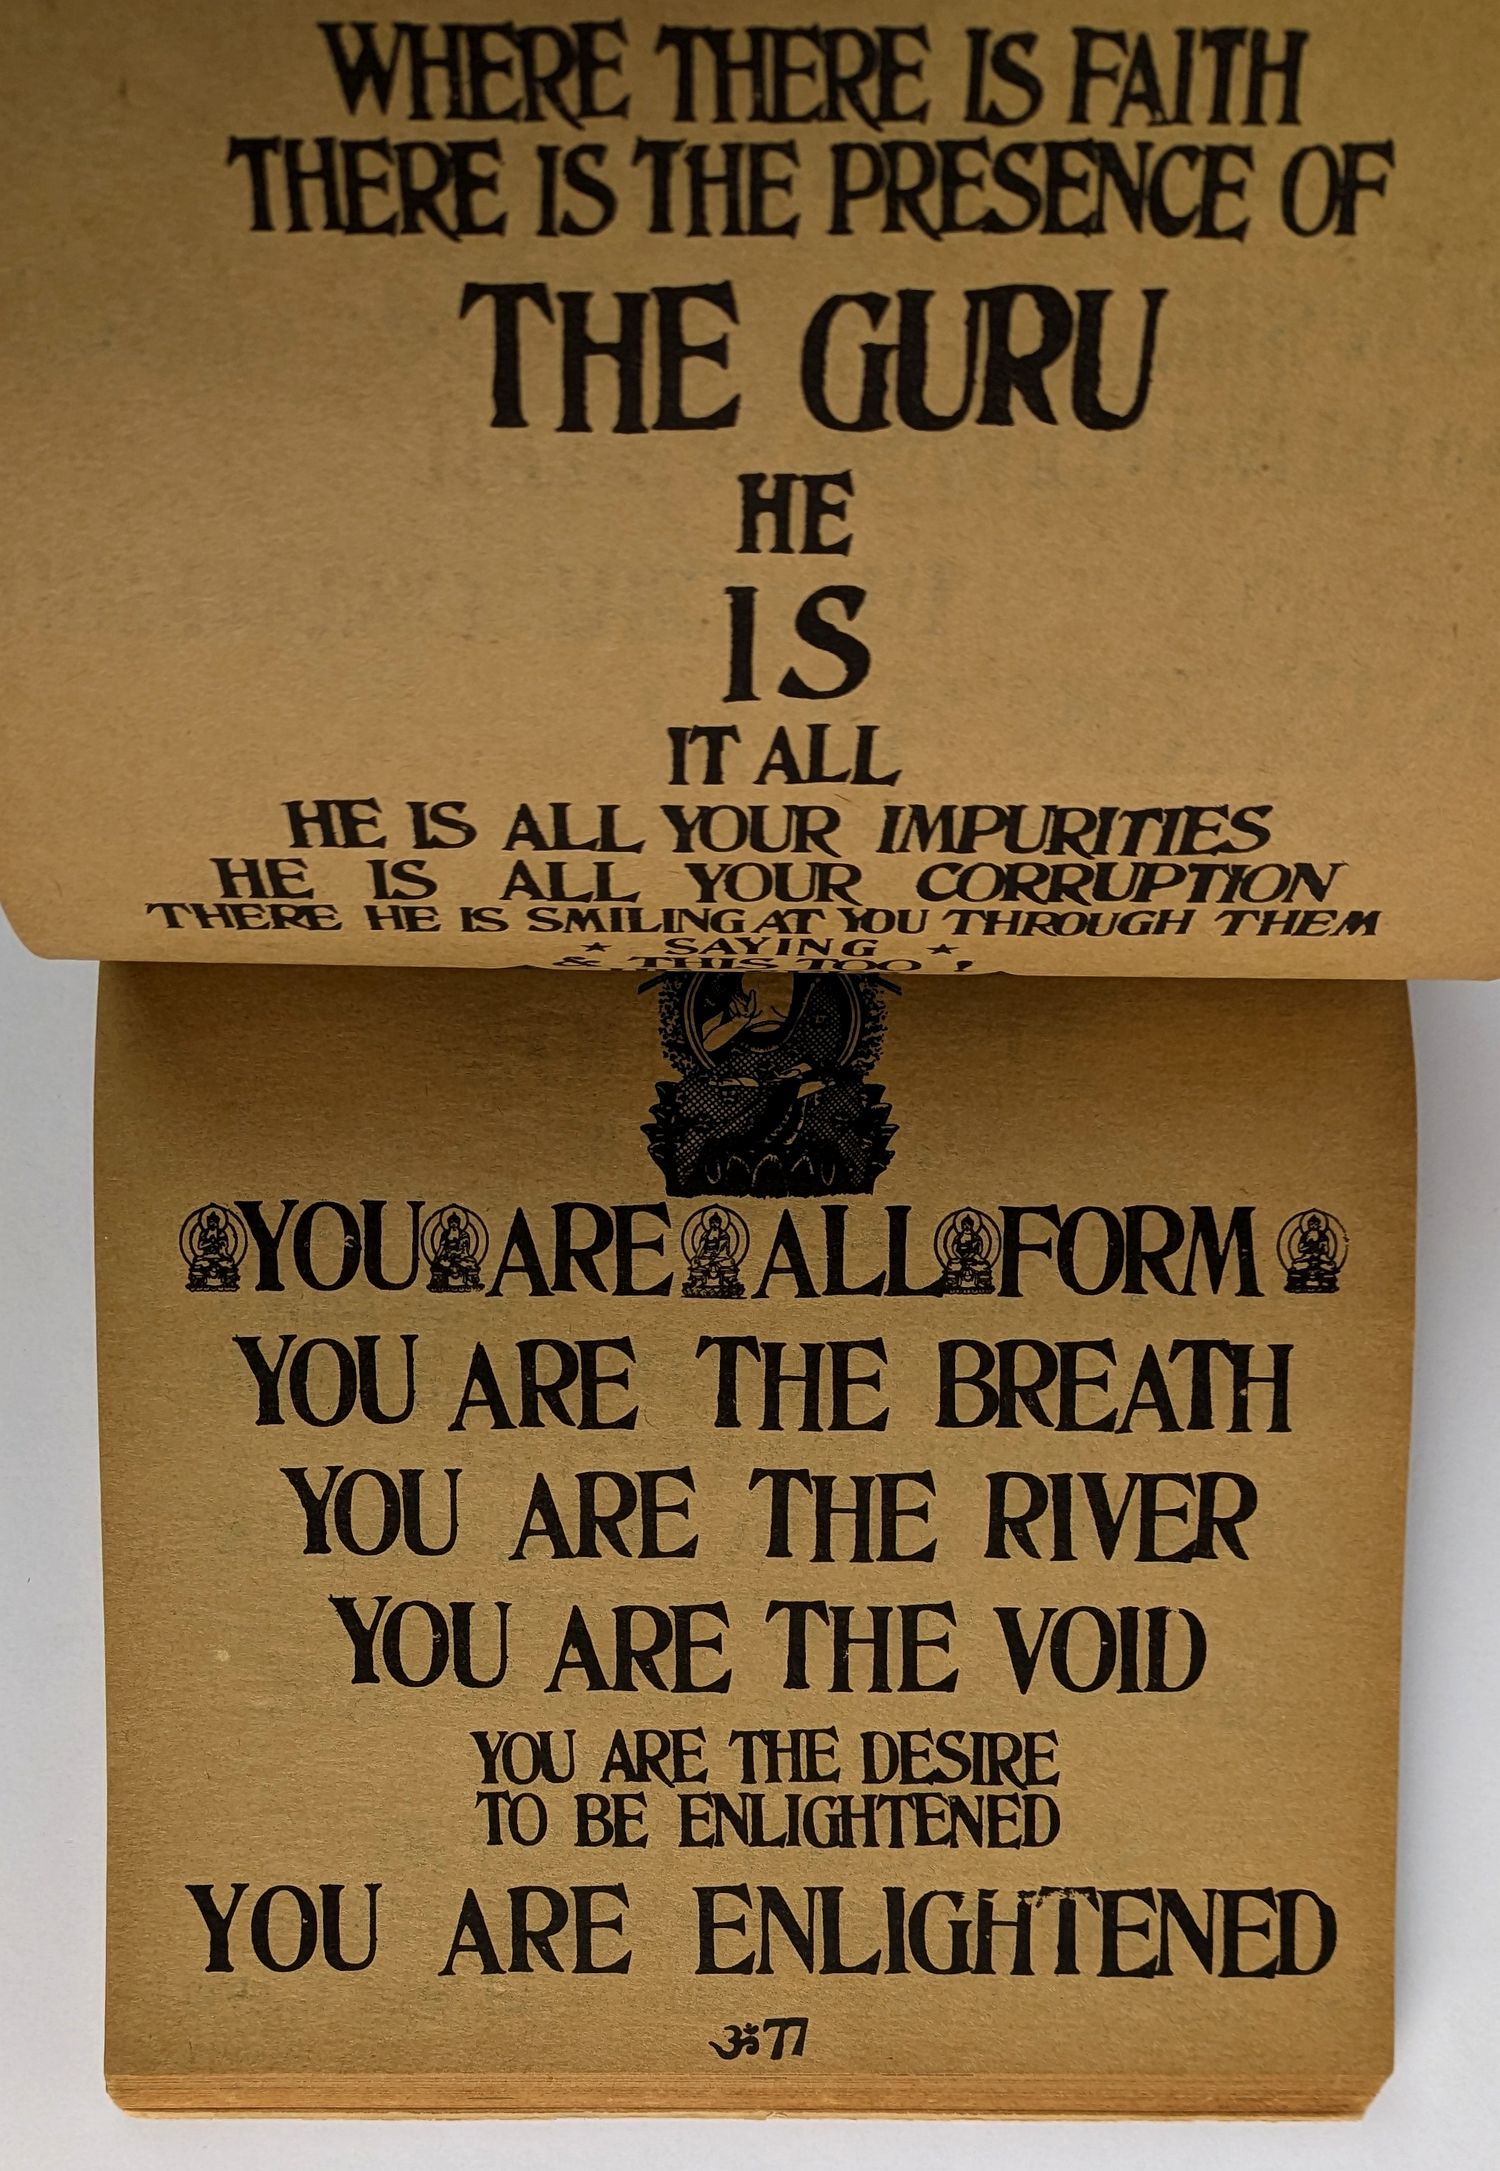 WHERE THERE IS FAITH
THERE IS THE PRESENCE OF
THE GURU
HE
IS
IT ALL
HE IS ALL YOUR IMPURITIES
HE IS ALL YOUR CORRUPTION
THERE HE IS SMILING AT YOU THROUGH THEM
★ SAYING ★
& THIS TOO!
YOU ARE ALL FORM
YOU ARE THE BREATH
YOU ARE THE RIVER
YOU ARE THE VOID
YOU ARE THE DESIRE
TO BE ENLIGHTENED
YOU ARE ENLIGHTENED
ॐ 77